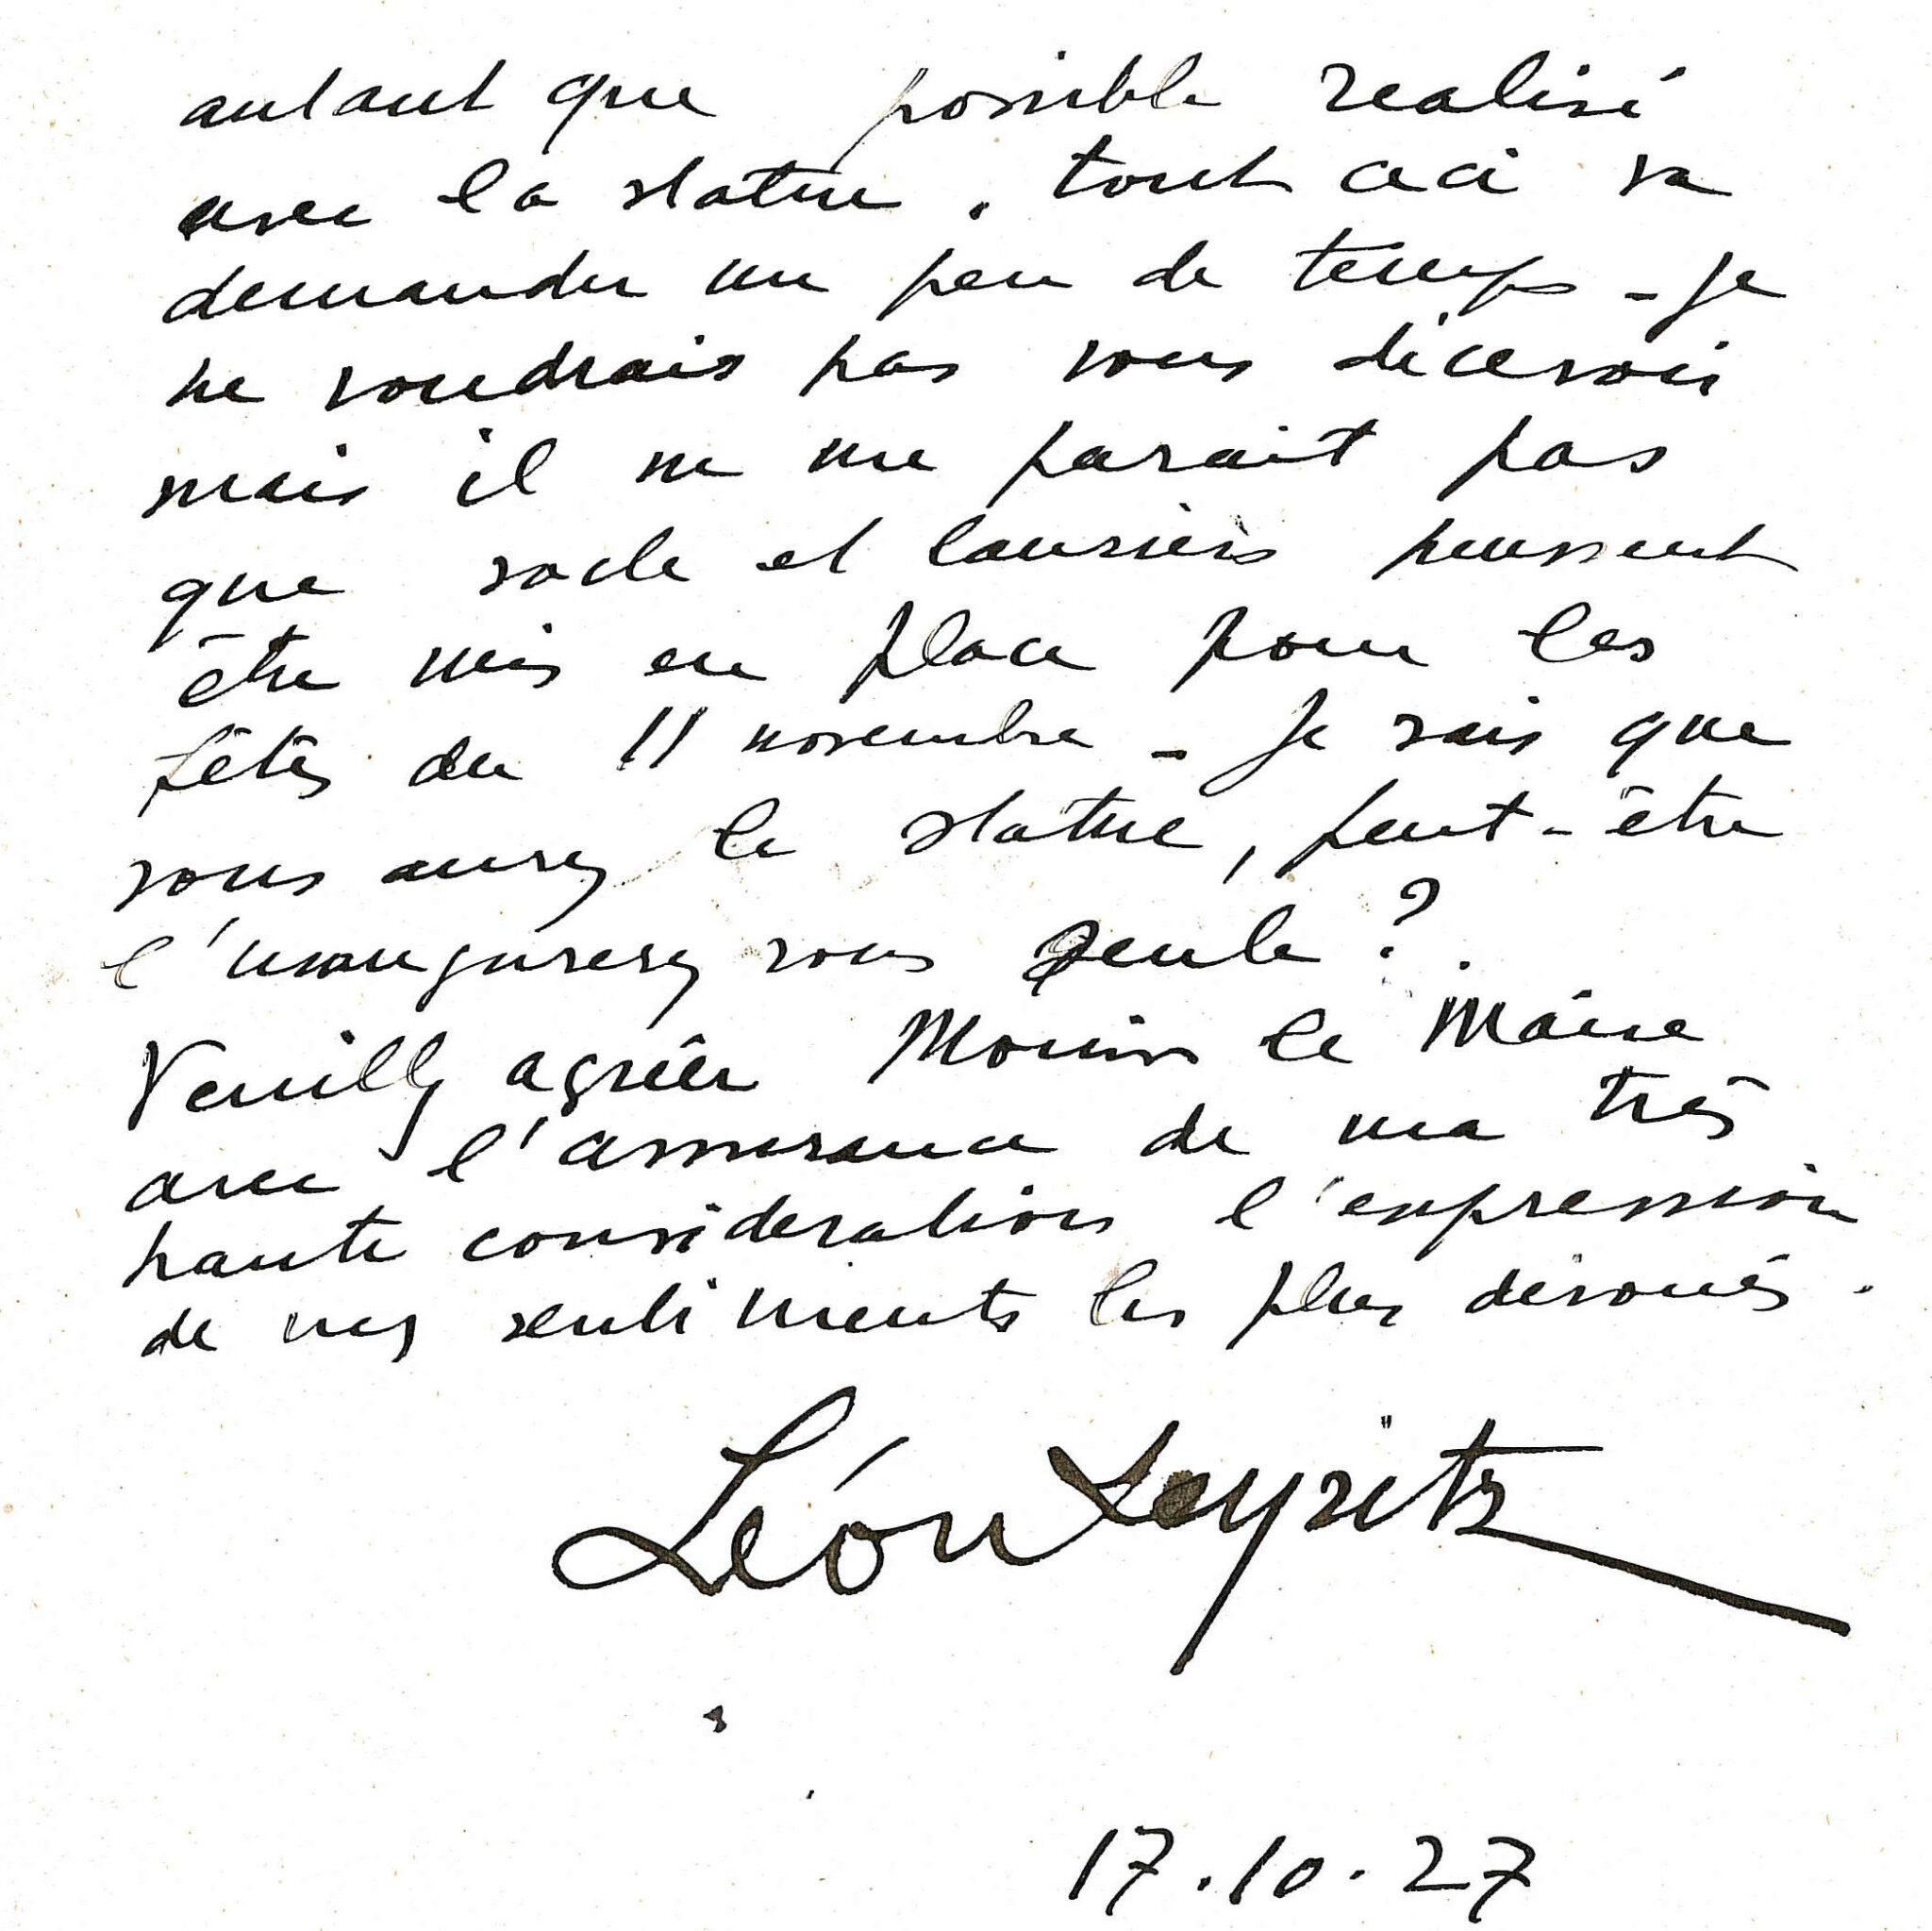 autant que possible realisé
avec la statue. tout ceci va
demander un peu de temps - je
ne voudrais pas vous décevoir
mais il ne me parait pas
que socle et lauriers puissent
être mis en place pour les
fêtes du 11 novembre - Je sais que
vous aurez la statue, peut-être
l'inaugurerez vous seule ?
Veuillez agréer Monsieur le Maire
avec l'assurance de ma très
haute consideration l'expression
de mes sentiments les plus dévoués.
Léon Leyritz
17.10.27